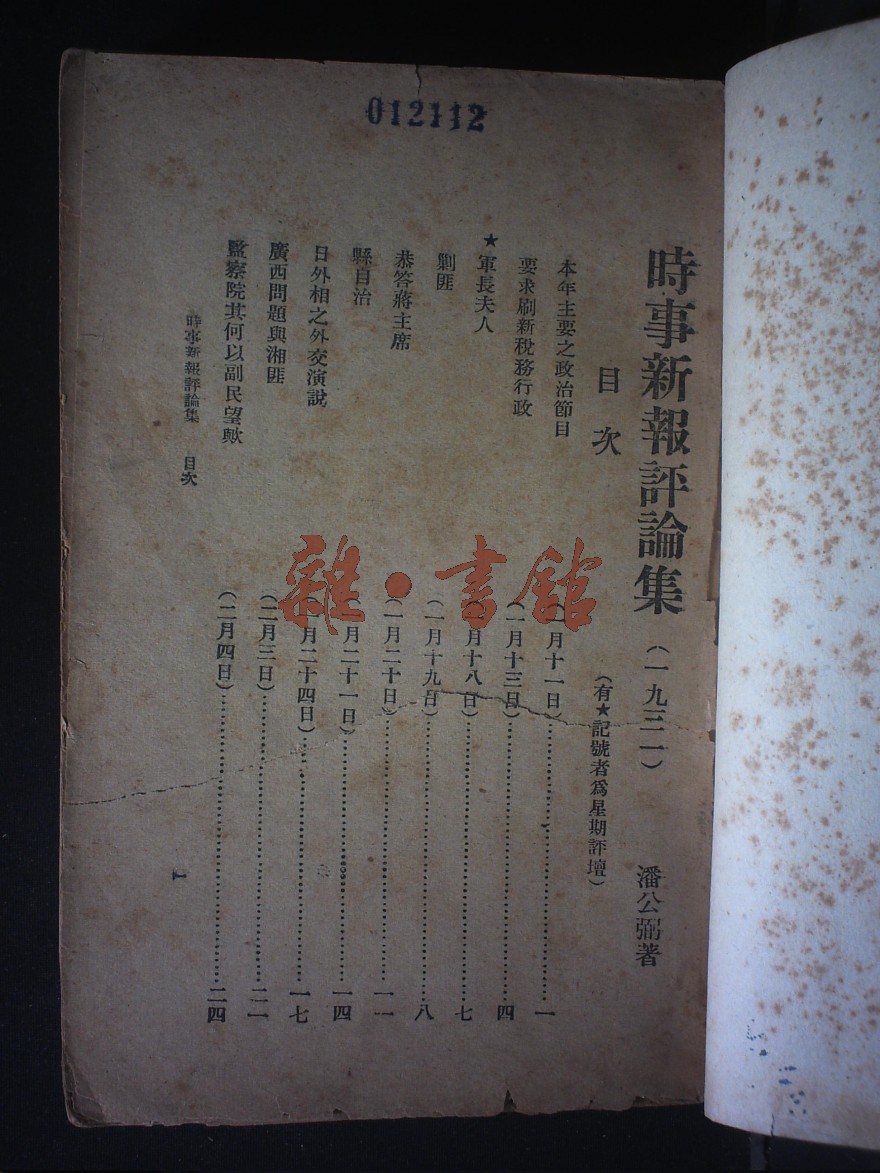 012112
時事新報評論集（一九三一） 潘公弼著
目次 （有★記號者爲星期評壇）
本年主要之政治節目 （一月十一日）……一
要求刷新稅務行政 （一月十三日）……四
★軍長夫人 （一月十八日）……七
剿匪 （一月十九日）……八
恭答蔣主席 （一月二十日）……一一
縣自治 （一月二十一日）……一四
日外相之外交演說 （一月二十四日）……一七
廣西問題與湘匪 （二月三日）……二一
監察院其何以副民望歟 （二月四日）……二四
時事新報評論集 目次
1
雜·書館